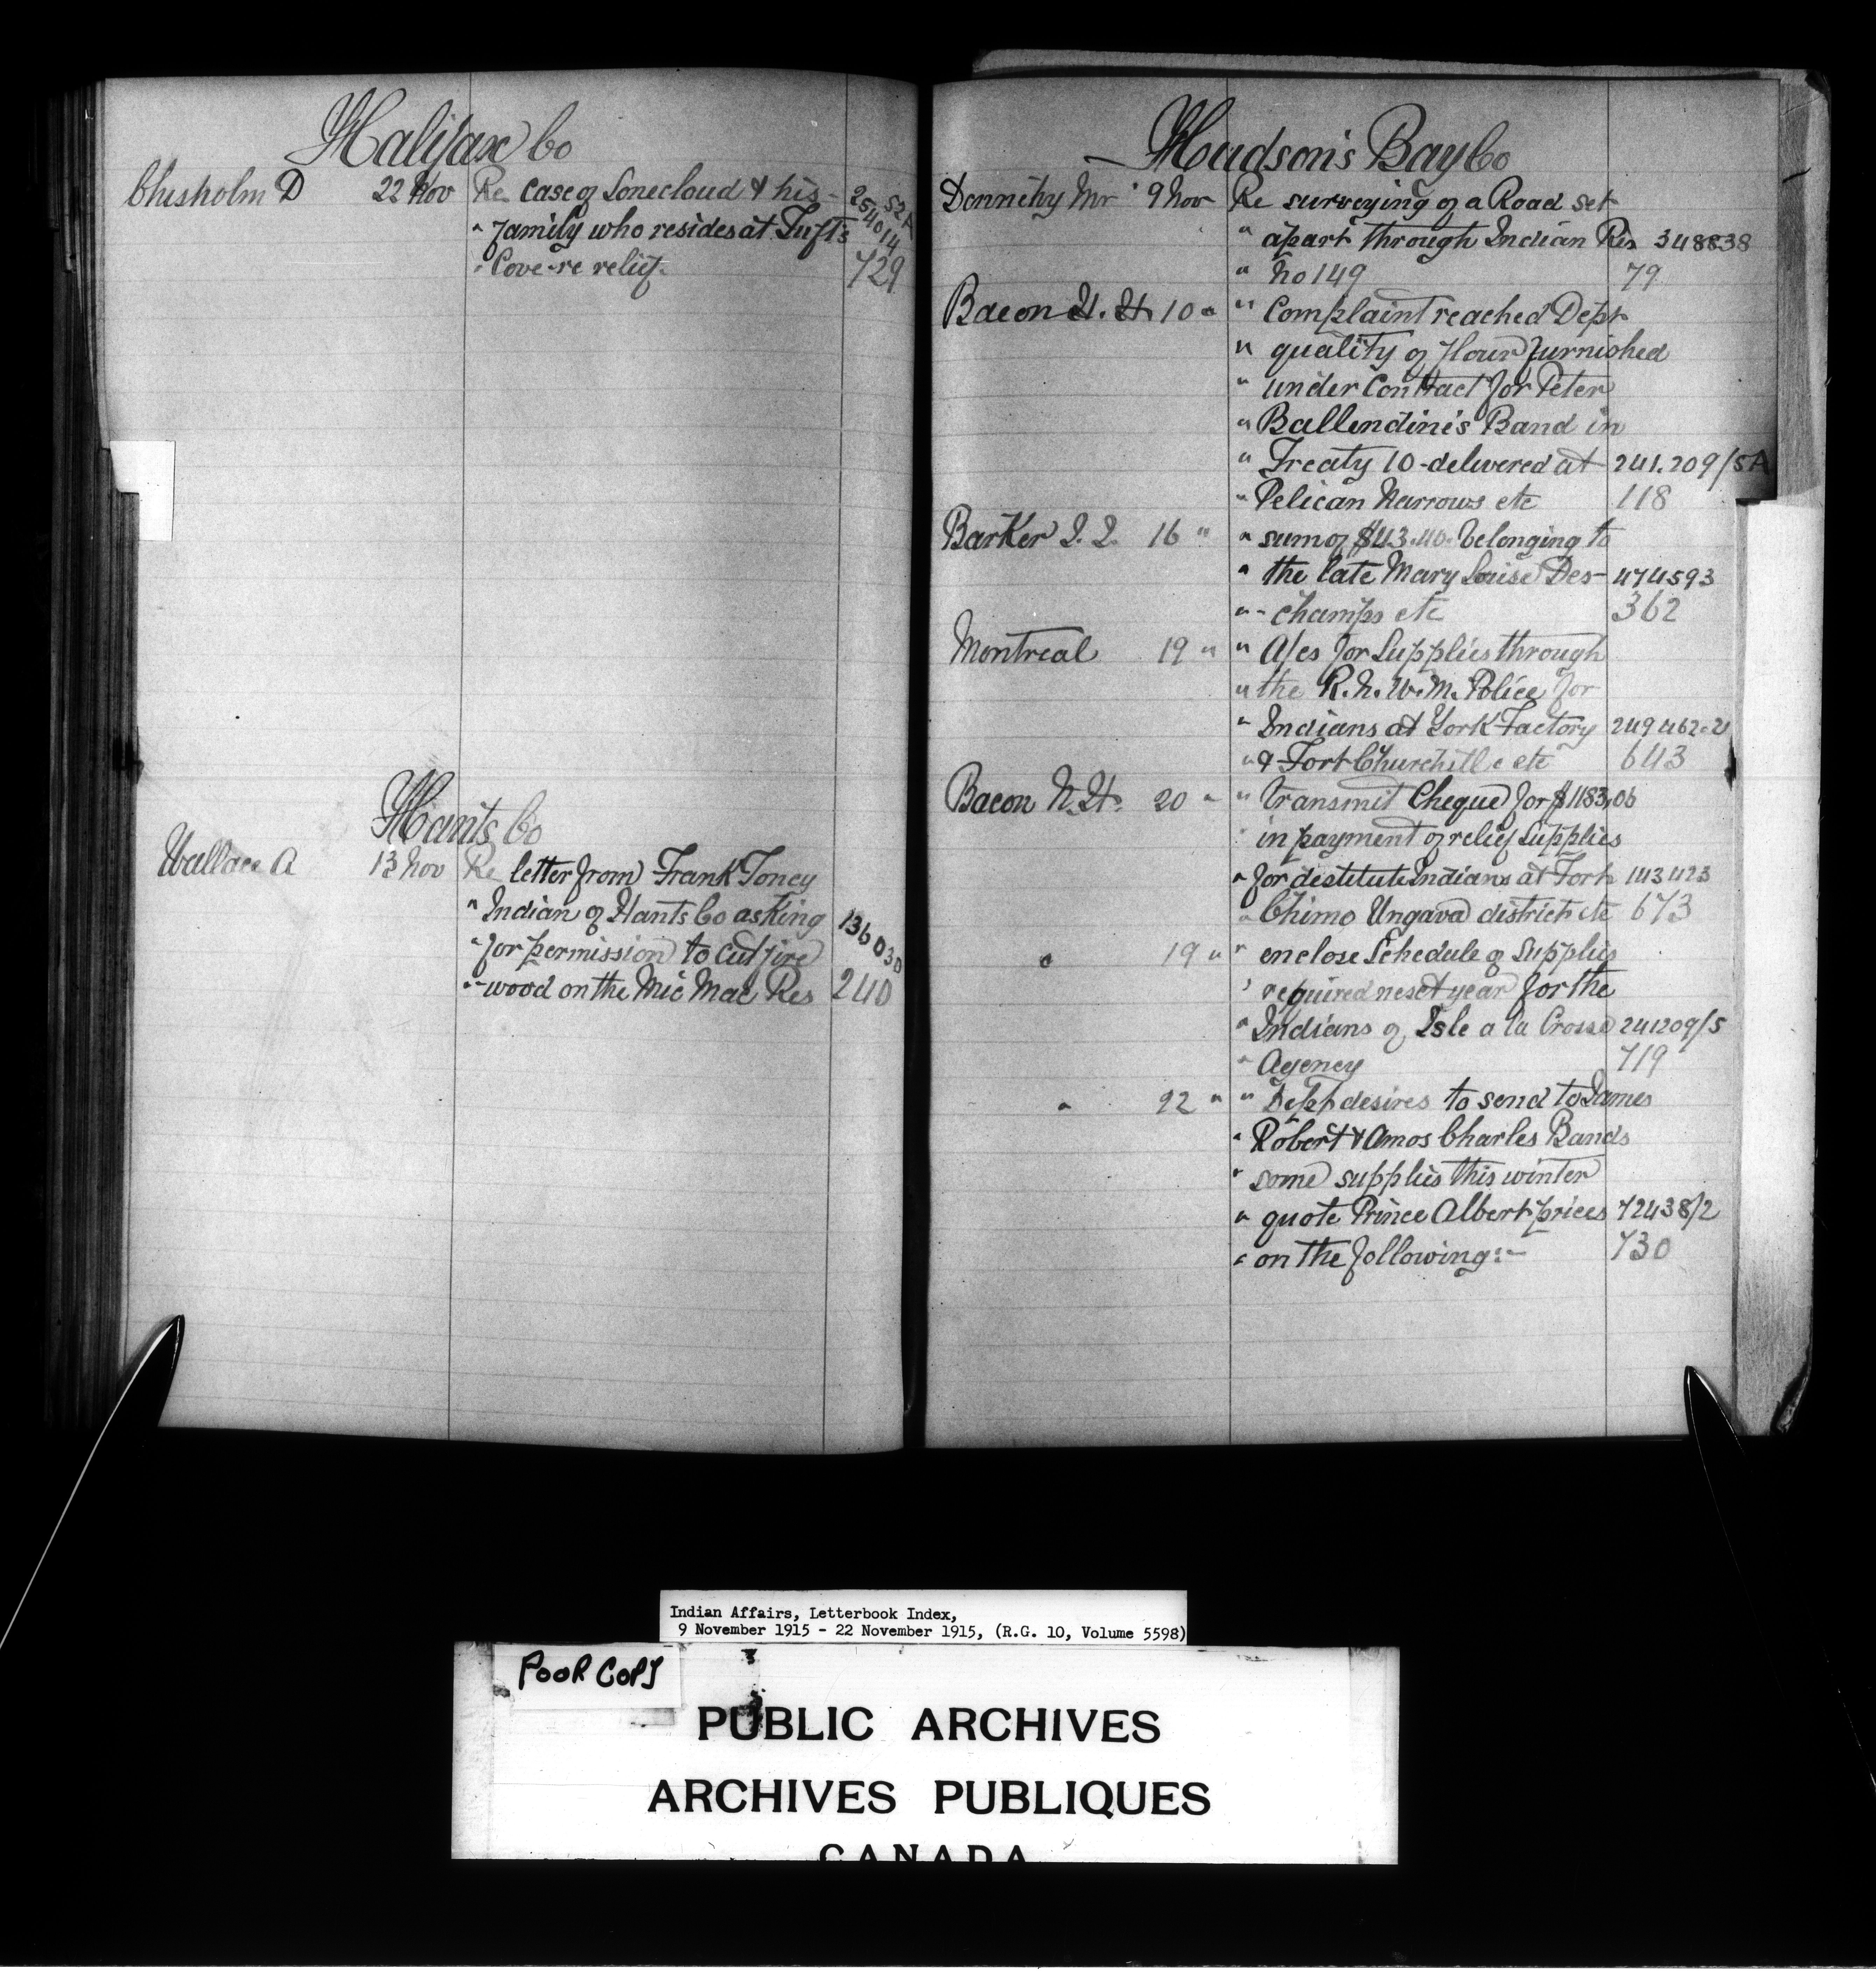 Halifax Co
Chisholm D 22 Nov Re case of Lonecloud & his 254014 52A
" family who resides at Tufts
" Cove-re relief. 729
Hants Co
Wallace A 13 Nov Re letter from Frank Toney
" Indian of Hants Co asking 136030
" for permission to cut fire
"-wood on the Mic Mac Res 240
Hudson's Bay Co
Dennehy Mr 9 Nov Re surveying of a Road set
" apart through Indian Res 348838
" No 149 79
Bacon N. H. 10 " " Complaint reached Dept
" quality of flour furnished
" under contract for Peter
" Ballendine's Band in
" Treaty 10 - delivered at 241.209/5A
" Pelican Narrows etc 118
Barker 16 " " sum of $43.40. belonging to
" the late Mary Louise Des- 474593
"- champs etc 362
Montreal 19 " " A/cs for Supplies through
" the R. N. W. M. Police for
" Indians at York Factory 249462-2
" & Fort Churchill etc 643
Bacon N. H. 20 " " transmit Cheque for $1183,06
" in payment of relief supplies
" for destitute Indians at Fort 143423
" Chimo Ungava district etc 673
" 19 " " enclose Schedule of supplies
" required next year for the
" Indians of Isle a la Crosse 241209/5
" Agency 719
" 22 " " Dept desires to send to James
" Robert & Amos Charles Bands
" some supplies this winter
" quote Prince Albert prices 72438/2
" on the following:- 730
Indian Affairs, Letterbook Index,
9 November 1915 - 22 November 1915, (R.G. 10, Volume 5598)
POOR COPY
PUBLIC ARCHIVES
ARCHIVES PUBLIQUES
CANADA